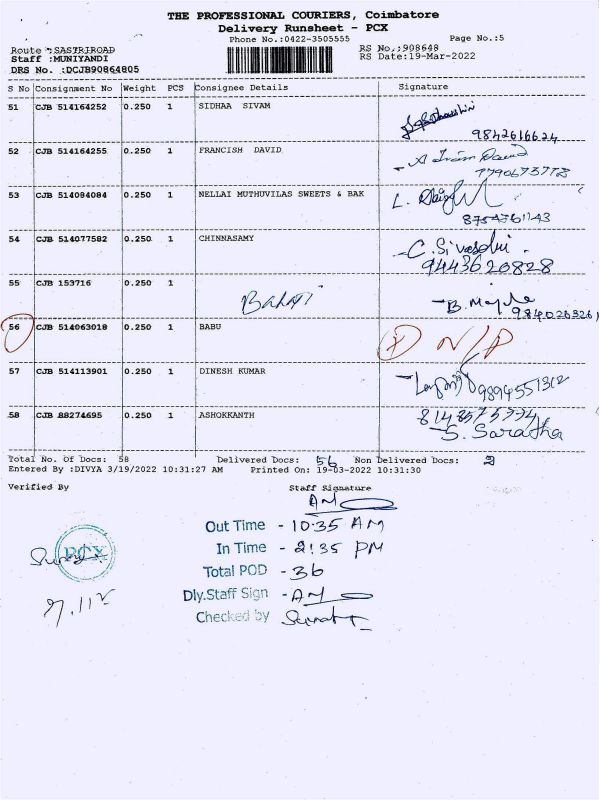 THE PROFESSIONAL COURIERS, Coimbatore
Delivery Runsheet - PCX
Phone No.:0422-3505555 Page No.:5
Route :SASTRIROAD RS No,:908648
Staff :MUNIYANDI RS Date:19-Mar-2022
DRS No. :DCJB90864805
S No Consignment No Weight PCS Consignee Details Signature
51 CJB 514164252 0.250 1 SIDHAA SIVAM
9842616624
52 CJB 514164255 0.250 1 FRANCISH DAVID
7790673773
53 CJB 514084084 0.250 1 NELLAI MUTHUVILAS SWEETS & BAK
8754761143
54 CJB 514077582 0.250 1 CHINNASAMY C. Sivasobi
9443620828
55 CJB 153716 0.250 1
B. 9840263261
56 CJB 514063018 0.250 1 BABU N/P
57 CJB 514113901 0.250 1 DINESH KUMAR
9894551312
58 CJB 88274695 0.250 1 ASHOKKANTH
S. Saratha
Total No. Of Docs: 58 Delivered Docs: 56 Non Delivered Docs: 2
Entered By :DIVYA 3/19/2022 10:31:27 AM Printed On: 19-03-2022 10:31:30
Verified By Staff Signature
AM
Out Time - 10:35 AM
In Time - 2:35 PM
PCX
Total POD - 36
Dly.Staff Sign - AM
Checked by